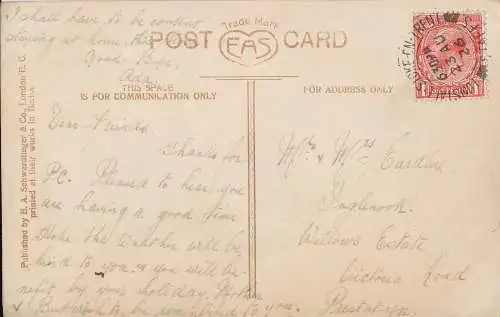 I shall have to be content
staying at home this
Good-Bye.
Ada.
Trade Mark
POST CARD
EAS
THIS SPACE
IS FOR COMMUNICATION ONLY
FOR ADDRESS ONLY
STOKE-ON-TRENT
Published by E. A. Schwerdtfeger & Co., London E. C.
printed at their works in Berlin.
Dear Friends,
Thanks for
P.C. Pleased to hear you
are having a good time
Hope the Weather will be
kind to you. & you will be-
nefit by your holiday. Mother
& to be remembered to you.
Mr & Mrs Eardley
Inglenook
Willows Estate
Victoria Road
Prestatyn